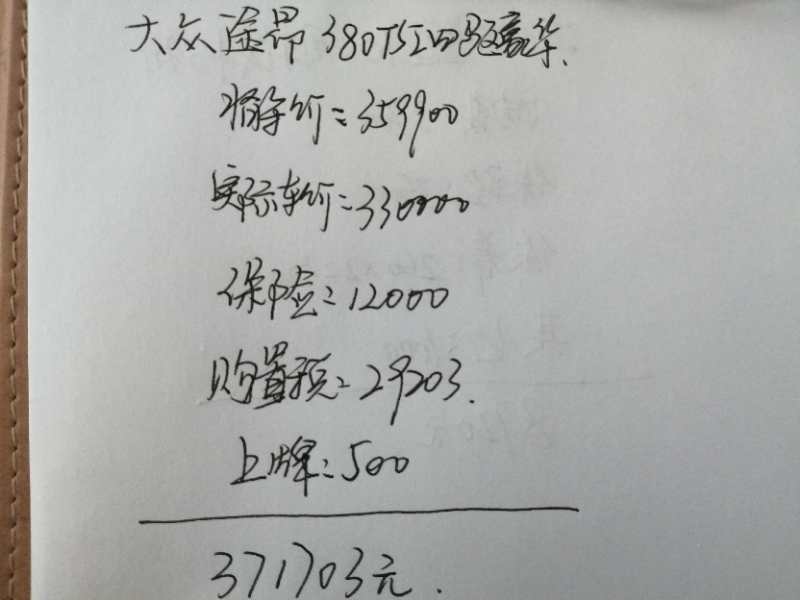 大众途昂380TSI四驱豪华.
指导价=359900
实际车价=330000
保险=12000
购置税=29203.
上牌=500
371703元.